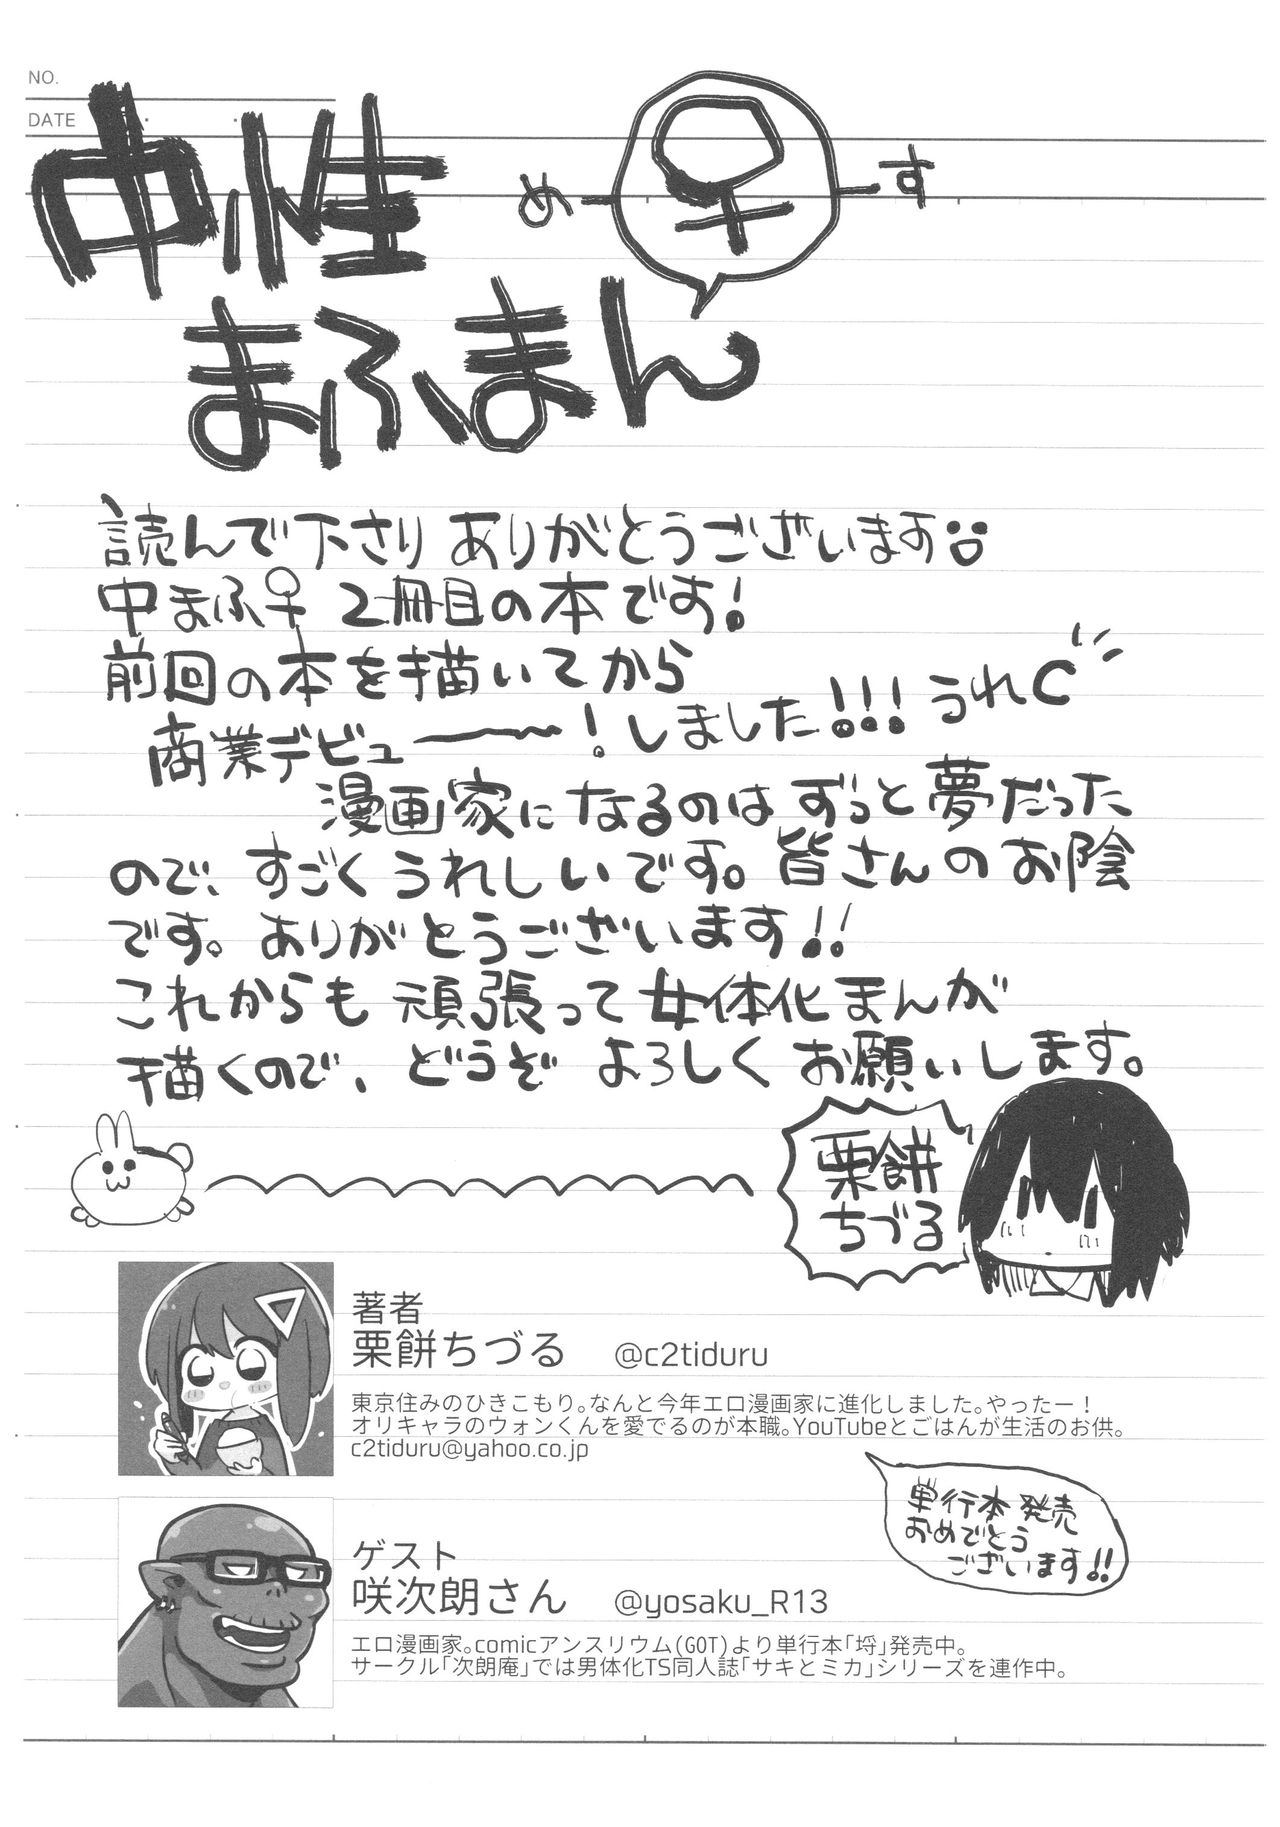 NO.
DATE
中性
め
♀
す
まふまん
読んで下さり ありがとうございます
中まふ♀ 2冊目の本です!
前回の本を描いてから
商業デビュー〜!しました!!!うれC
漫画家になるのは ずっと夢だった
ので、すごくうれしいです。皆さんのお陰
です。ありがとうございます!!
これからも 頑張って 女体化まんが
描くので、どうぞ よろしく お願いします。
栗餅
ちづる
著者
栗餅ちづる @c2tiduru
東京住みのひきこもり。なんと今年エロ漫画家に進化しました。やったー!
オリキャラのウォンくんを愛でるのが本職。YouTubeとごはんが生活のお供。
c2tiduru@yahoo.co.jp
単行本 発売
おめでとう
ございます!!
ゲスト
咲次朗さん @yosaku_R13
エロ漫画家。comicアンスリウム(GOT)より単行本「埒」発売中。
サークル「次朗庵」では男体化TS同人誌「サキとミカ」シリーズを連作中。